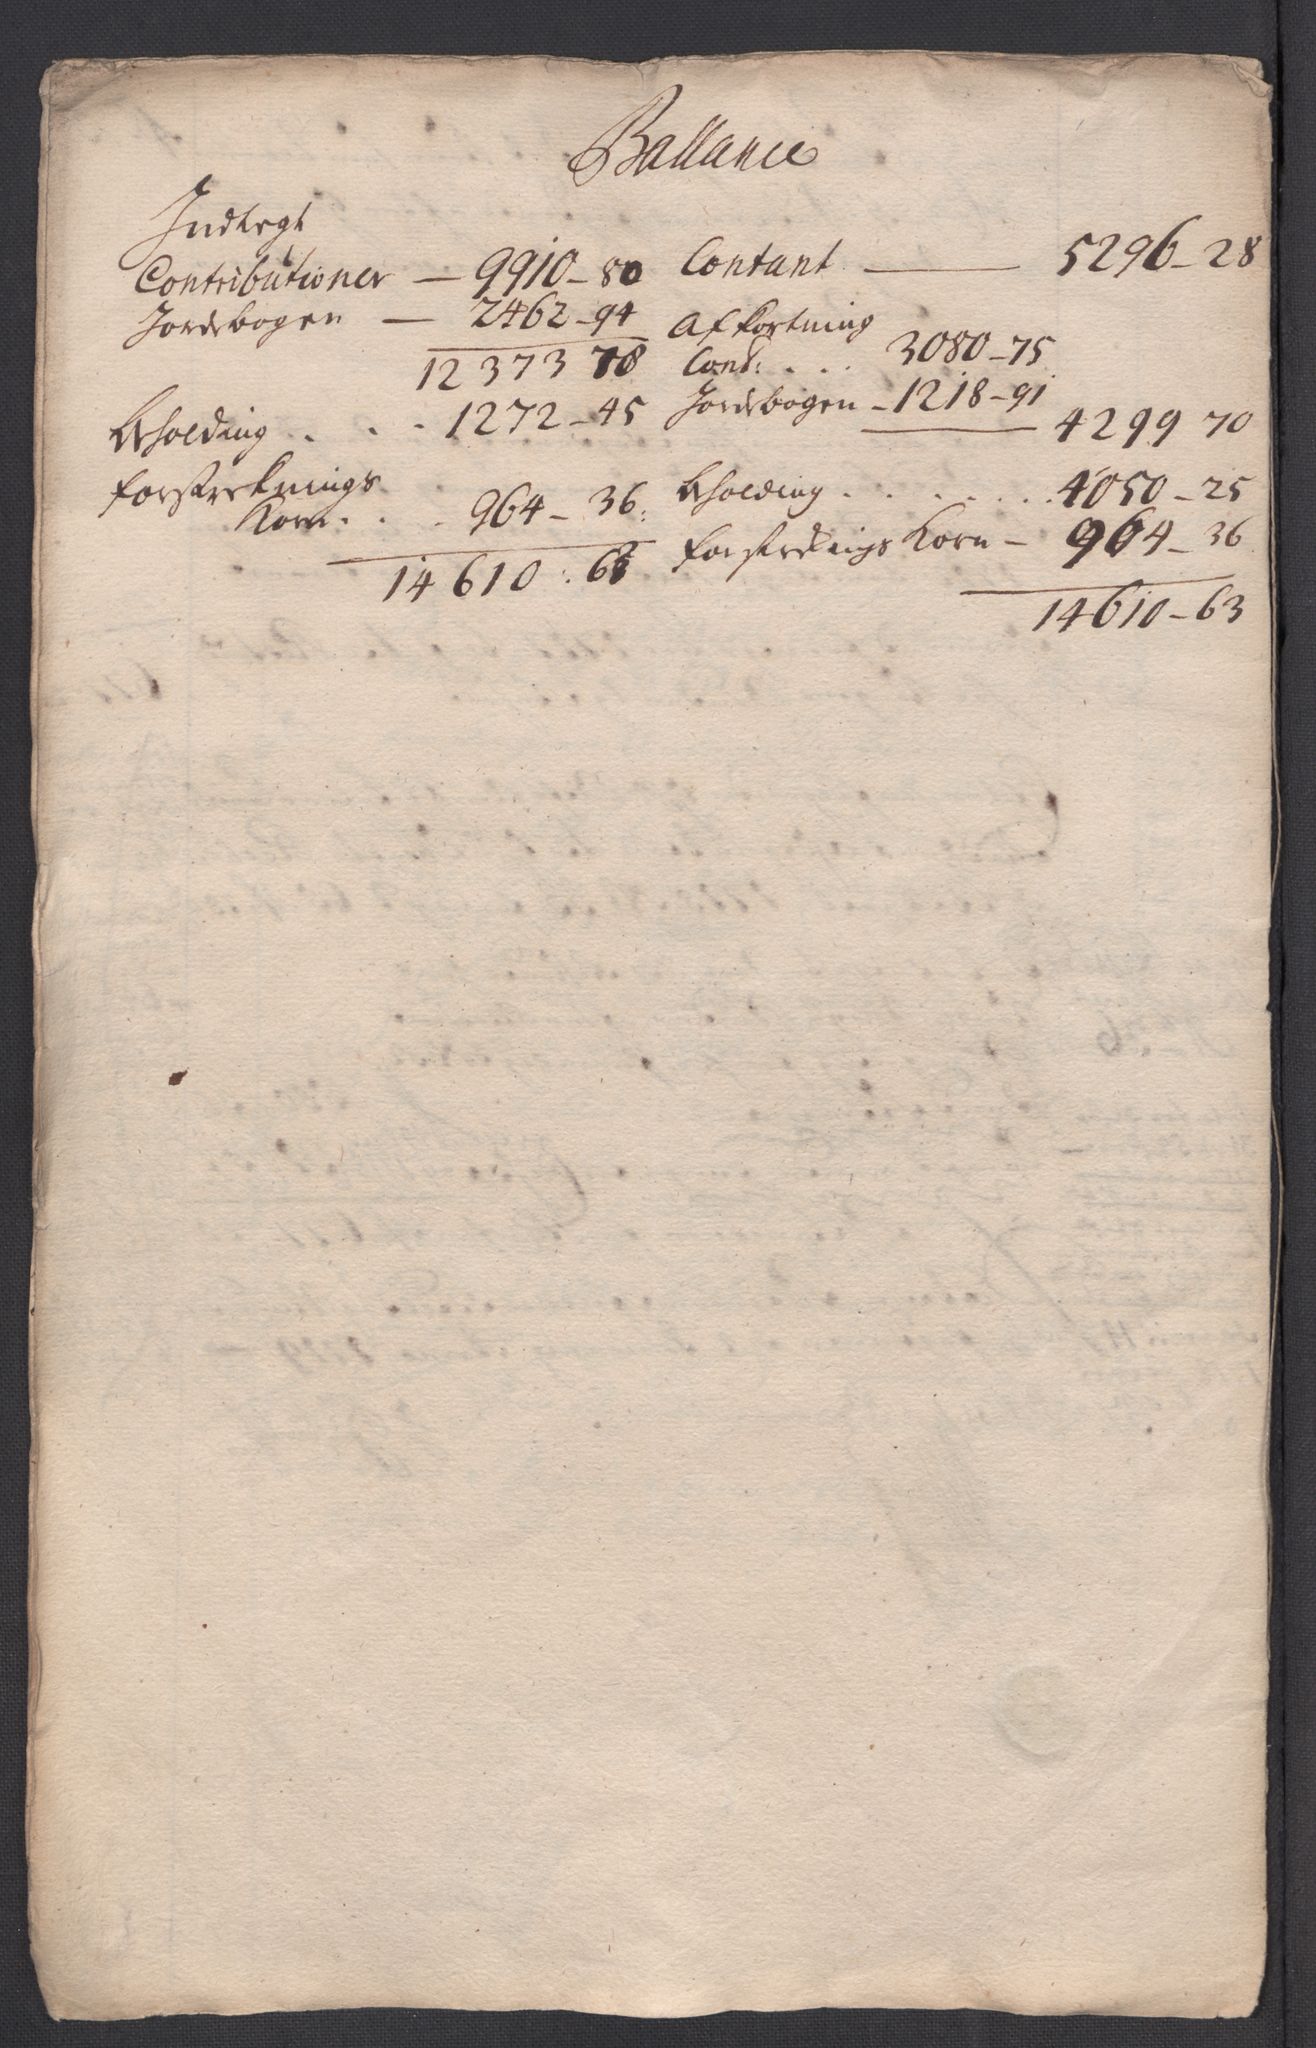 Ballance
Indtegt
Contributioner — 9910 - 80
Jordebogen — 2462 - 94
12373 78
Beholding . . . . 1272 - 45
forstreknings
Korn . . . . 964 - 36
14610 : 63
Contant — 5296 - 28
Afkortning
Cont: . . . 3080 - 75
Jordebogen - 1218 - 91
4299 70
Beholding . . . . . . . 4050 - 25
forstreknings Korn - 964 - 36
14610 - 63